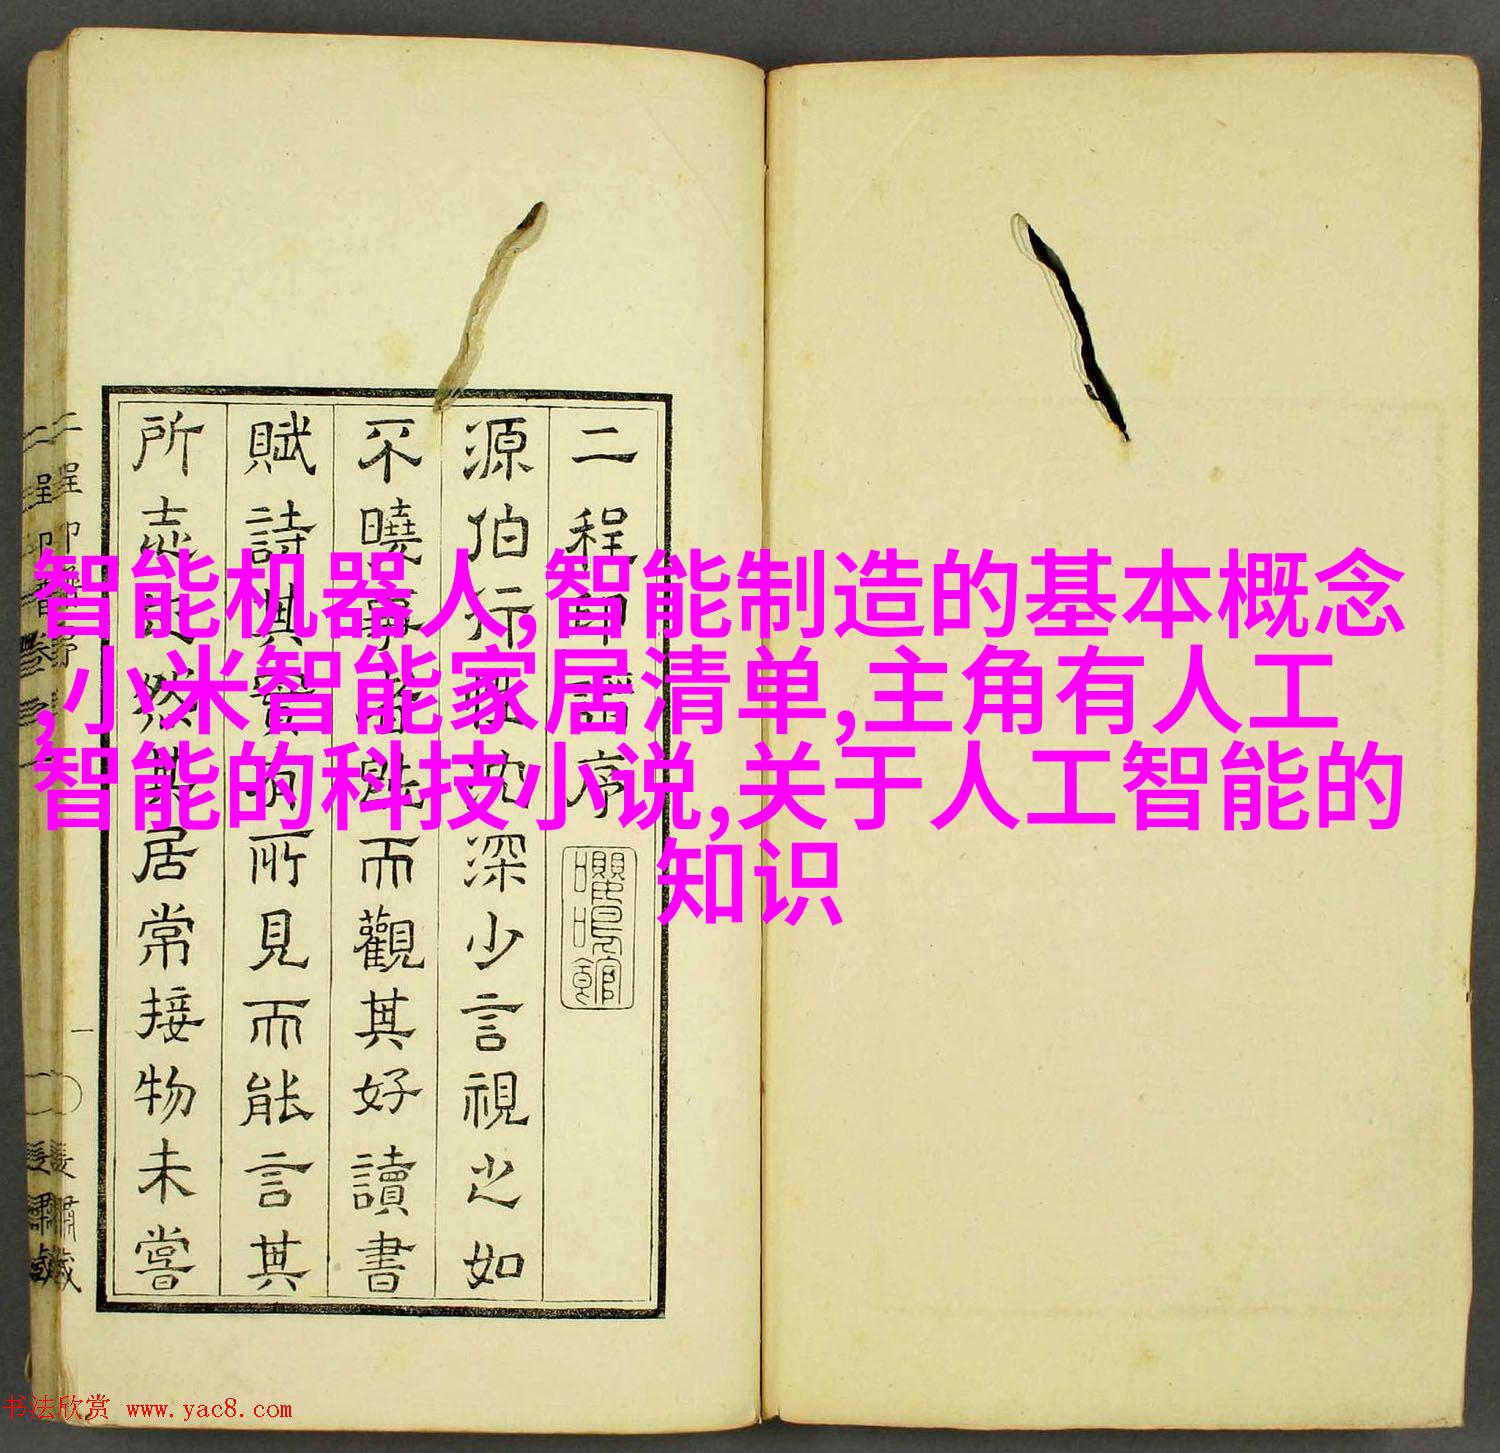 二程印譜序
源伯行性沈深少言視之如
不曉事者既而觀其好讀書
賦詩其實有所見而能言其
所志然其居常接物未嘗
智能机器人,智能制造的基本概念
,小米智能家居清单,主角有人工
智能的科技小说,关于人工智能的
知识
书法欣赏 www.yac8.com